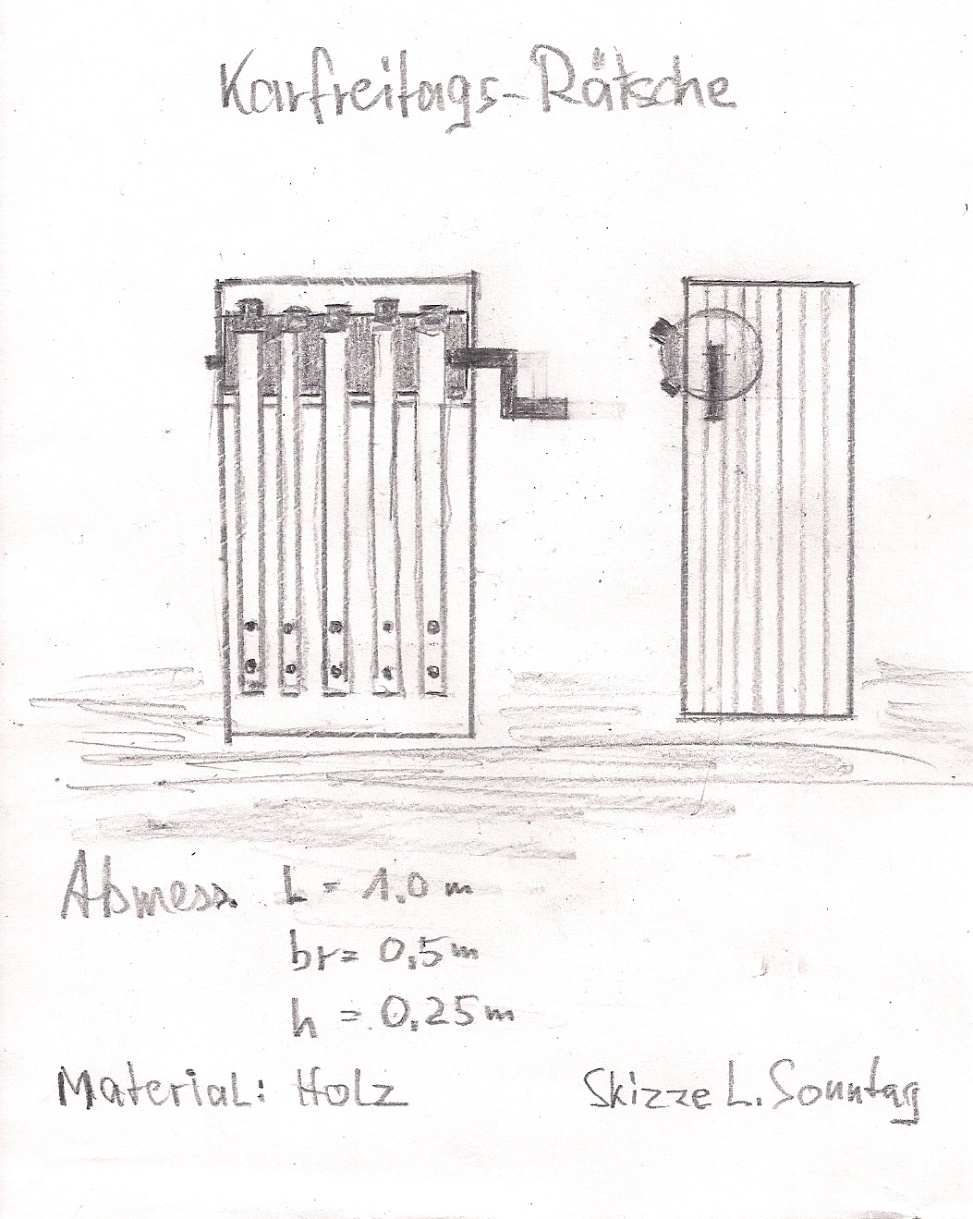 Karfreitags-Rätsche
Abmess. L = 1.0 m
br = 0,5 m
h = 0,25 m
Material: Holz
Skizze L. Sonntag